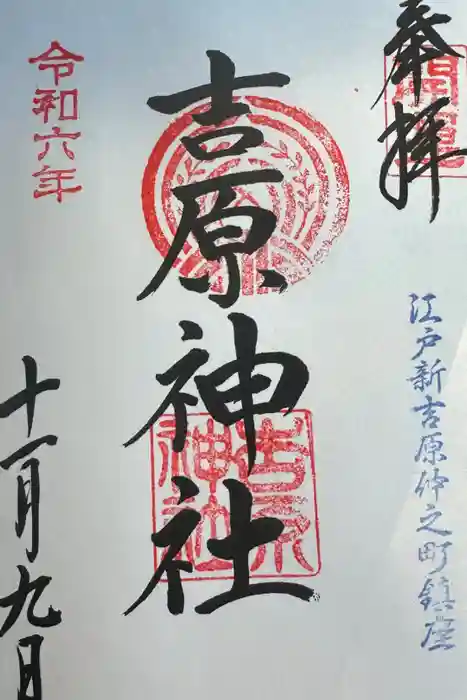 奉拝
開運
江戸新吉原仲之町鎮座
吉原神社
吉原神社
令和六年
十一月九日